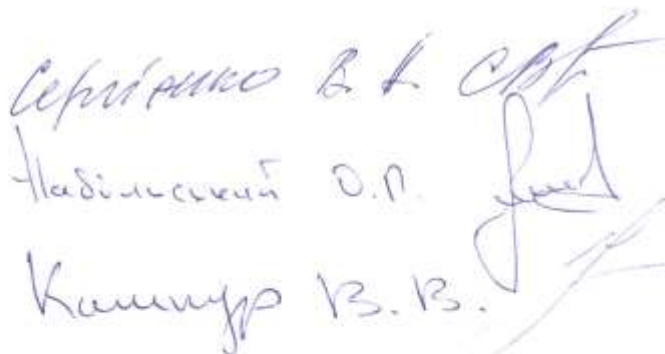 Сергієнко В. К. СВК
Набільський О.П.
Кашпур В.В.